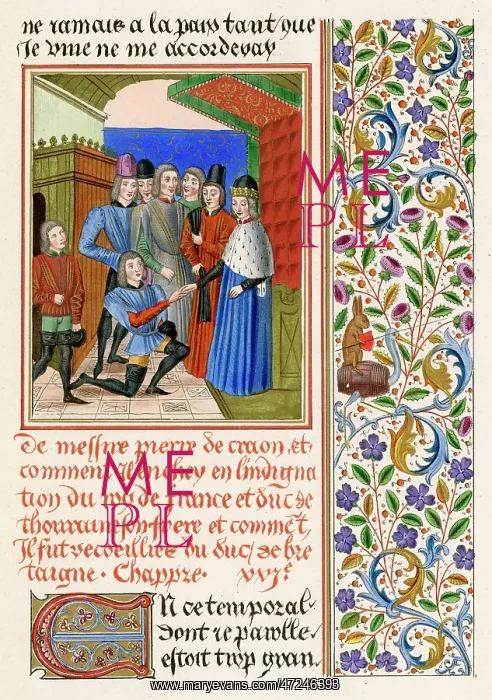 ne iamais a la paix tant que
Je vive ne me accorderay
De messire pierre de craon, et
comment en lindigna
tion du roy de france et duc de
thouraine son frere et commet,
Il fut recoeilliez du duc de bre
taigne. Chappre. xxje
En ce temporal
dont je parolle
estoit trop gran
ME
PL
ME
PL
www.maryevans.com/47246393